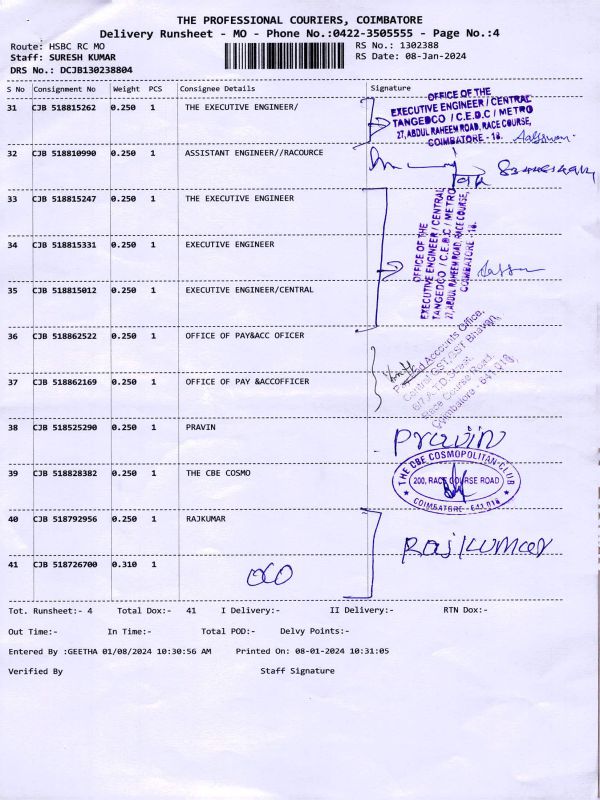 THE PROFESSIONAL COURIERS, COIMBATORE
Delivery Runsheet - MO - Phone No.:0422-3505555 - Page No.:4
Route: HSBC RC MO
RS No.: 1302388
Staff: SURESH KUMAR
RS Date: 08-Jan-2024
DRS No.: DCJB130238804
S No Consignment No Weight PCS Consignee Details Signature
31 CJB 518815262 0.250 1 THE EXECUTIVE ENGINEER/
OFFICE OF THE
EXECUTIVE ENGINEER / CENTRAL
TANGEDCO / C.E.D.C / METRO
27, ABDUL RAHEEM ROAD, RACE COURSE,
COIMBATORE - 18.
32 CJB 518810990 0.250 1 ASSISTANT ENGINEER//RACOURCE
33 CJB 518815247 0.250 1 THE EXECUTIVE ENGINEER
34 CJB 518815331 0.250 1 EXECUTIVE ENGINEER
35 CJB 518815012 0.250 1 EXECUTIVE ENGINEER/CENTRAL
OFFICE OF THE
EXECUTIVE ENGINEER / CENTRAL
TANGEDCO / C.E.D.C / METRO
27, ABDUL RAHEEM ROAD, RACE COURSE,
COIMBATORE - 18.
36 CJB 518862522 0.250 1 OFFICE OF PAY&ACC OFICER
37 CJB 518862169 0.250 1 OFFICE OF PAY &ACCOFFICER
Accounts Office,
Central GST, GST Bhavan,
6/7, A.T.D. Street,
Race Course Road,
Coimbatore - 641 018
38 CJB 518525290 0.250 1 PRAVIN
Pravin
39 CJB 518828382 0.250 1 THE CBE COSMO
THE CBE COSMOPOLITAN CLUB
200, RACE COURSE ROAD
COIMBATORE - 641 018
40 CJB 518792956 0.250 1 RAJKUMAR
Rajkumar
41 CJB 518726700 0.310 1
Tot. Runsheet:- 4 Total Dox:- 41 I Delivery:- II Delivery:- RTN Dox:-
Out Time:- In Time:- Total POD:- Delvy Points:-
Entered By :GEETHA 01/08/2024 10:30:56 AM Printed On: 08-01-2024 10:31:05
Verified By Staff Signature